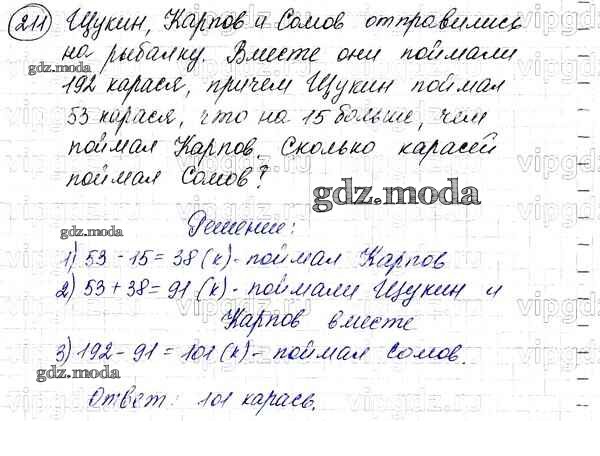 211 Щукин, Карпов и Сомов отправились
на рыбалку. Вместе они поймали
gdz.moda
192 карася, причем Щукин поймал
53 карася, что на 15 больше, чем
поймал Карпов. Сколько карасей
поймал Сомов?
gdz.moda
Решение:
gdz.moda
1) 53 - 15 = 38 (к) - поймал Карпов
2) 53 + 38 = 91 (к) - поймали Щукин и
Карпов вместе
3) 192 - 91 = 101 (к) - поймал Сомов.
gdz.moda
Ответ: 101 карась.
vipgdz.ru